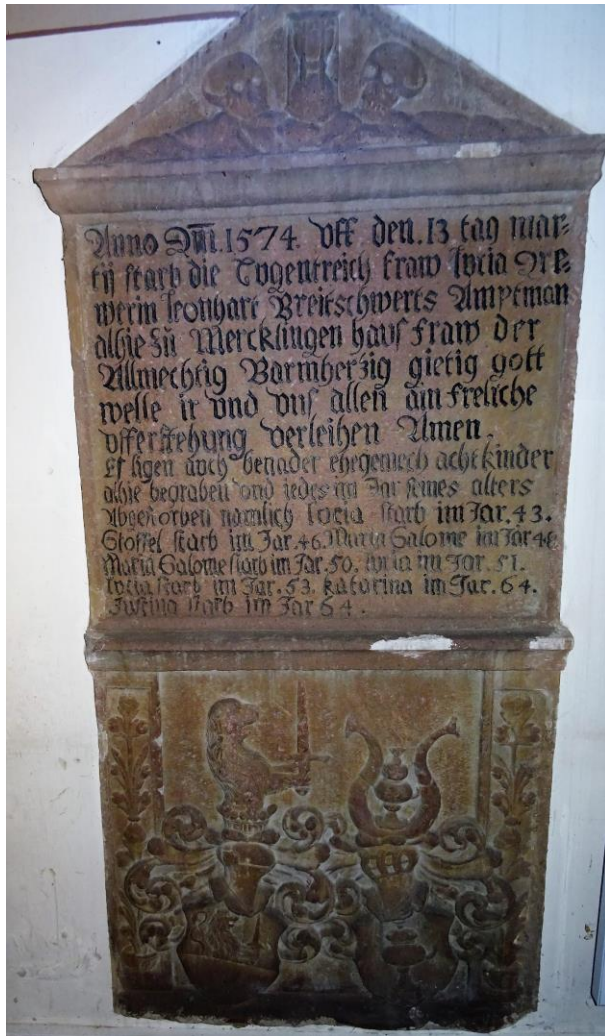 Anno Dm̅i. 1574. Vff den. 13 tag mar-
tij starb die Tugentreich fraw lucia Dre-
werin leonhart Breitschwerts Amptman
alhie zu Mercklingen hauß fraw der
Allmechtig Barmherzig gietig gott
welle ir vnd vnß allen ain freliche
vfferstehung verleihen Amen
Eß ligen auch benader ehegemech acht kinder
alhie begraben vnd iedes im Jar seines alters
Abgestorben namlich lucia starb im Jar. 43.
Stoffel starb im Jar. 46. Maria Salome im Jar 48
Maria Salome starb im Jar. 50. lucia im Jar. 51.
lucia starb im Jar. 53. katarina im Jar. 64.
Justina starb im Jar 64.